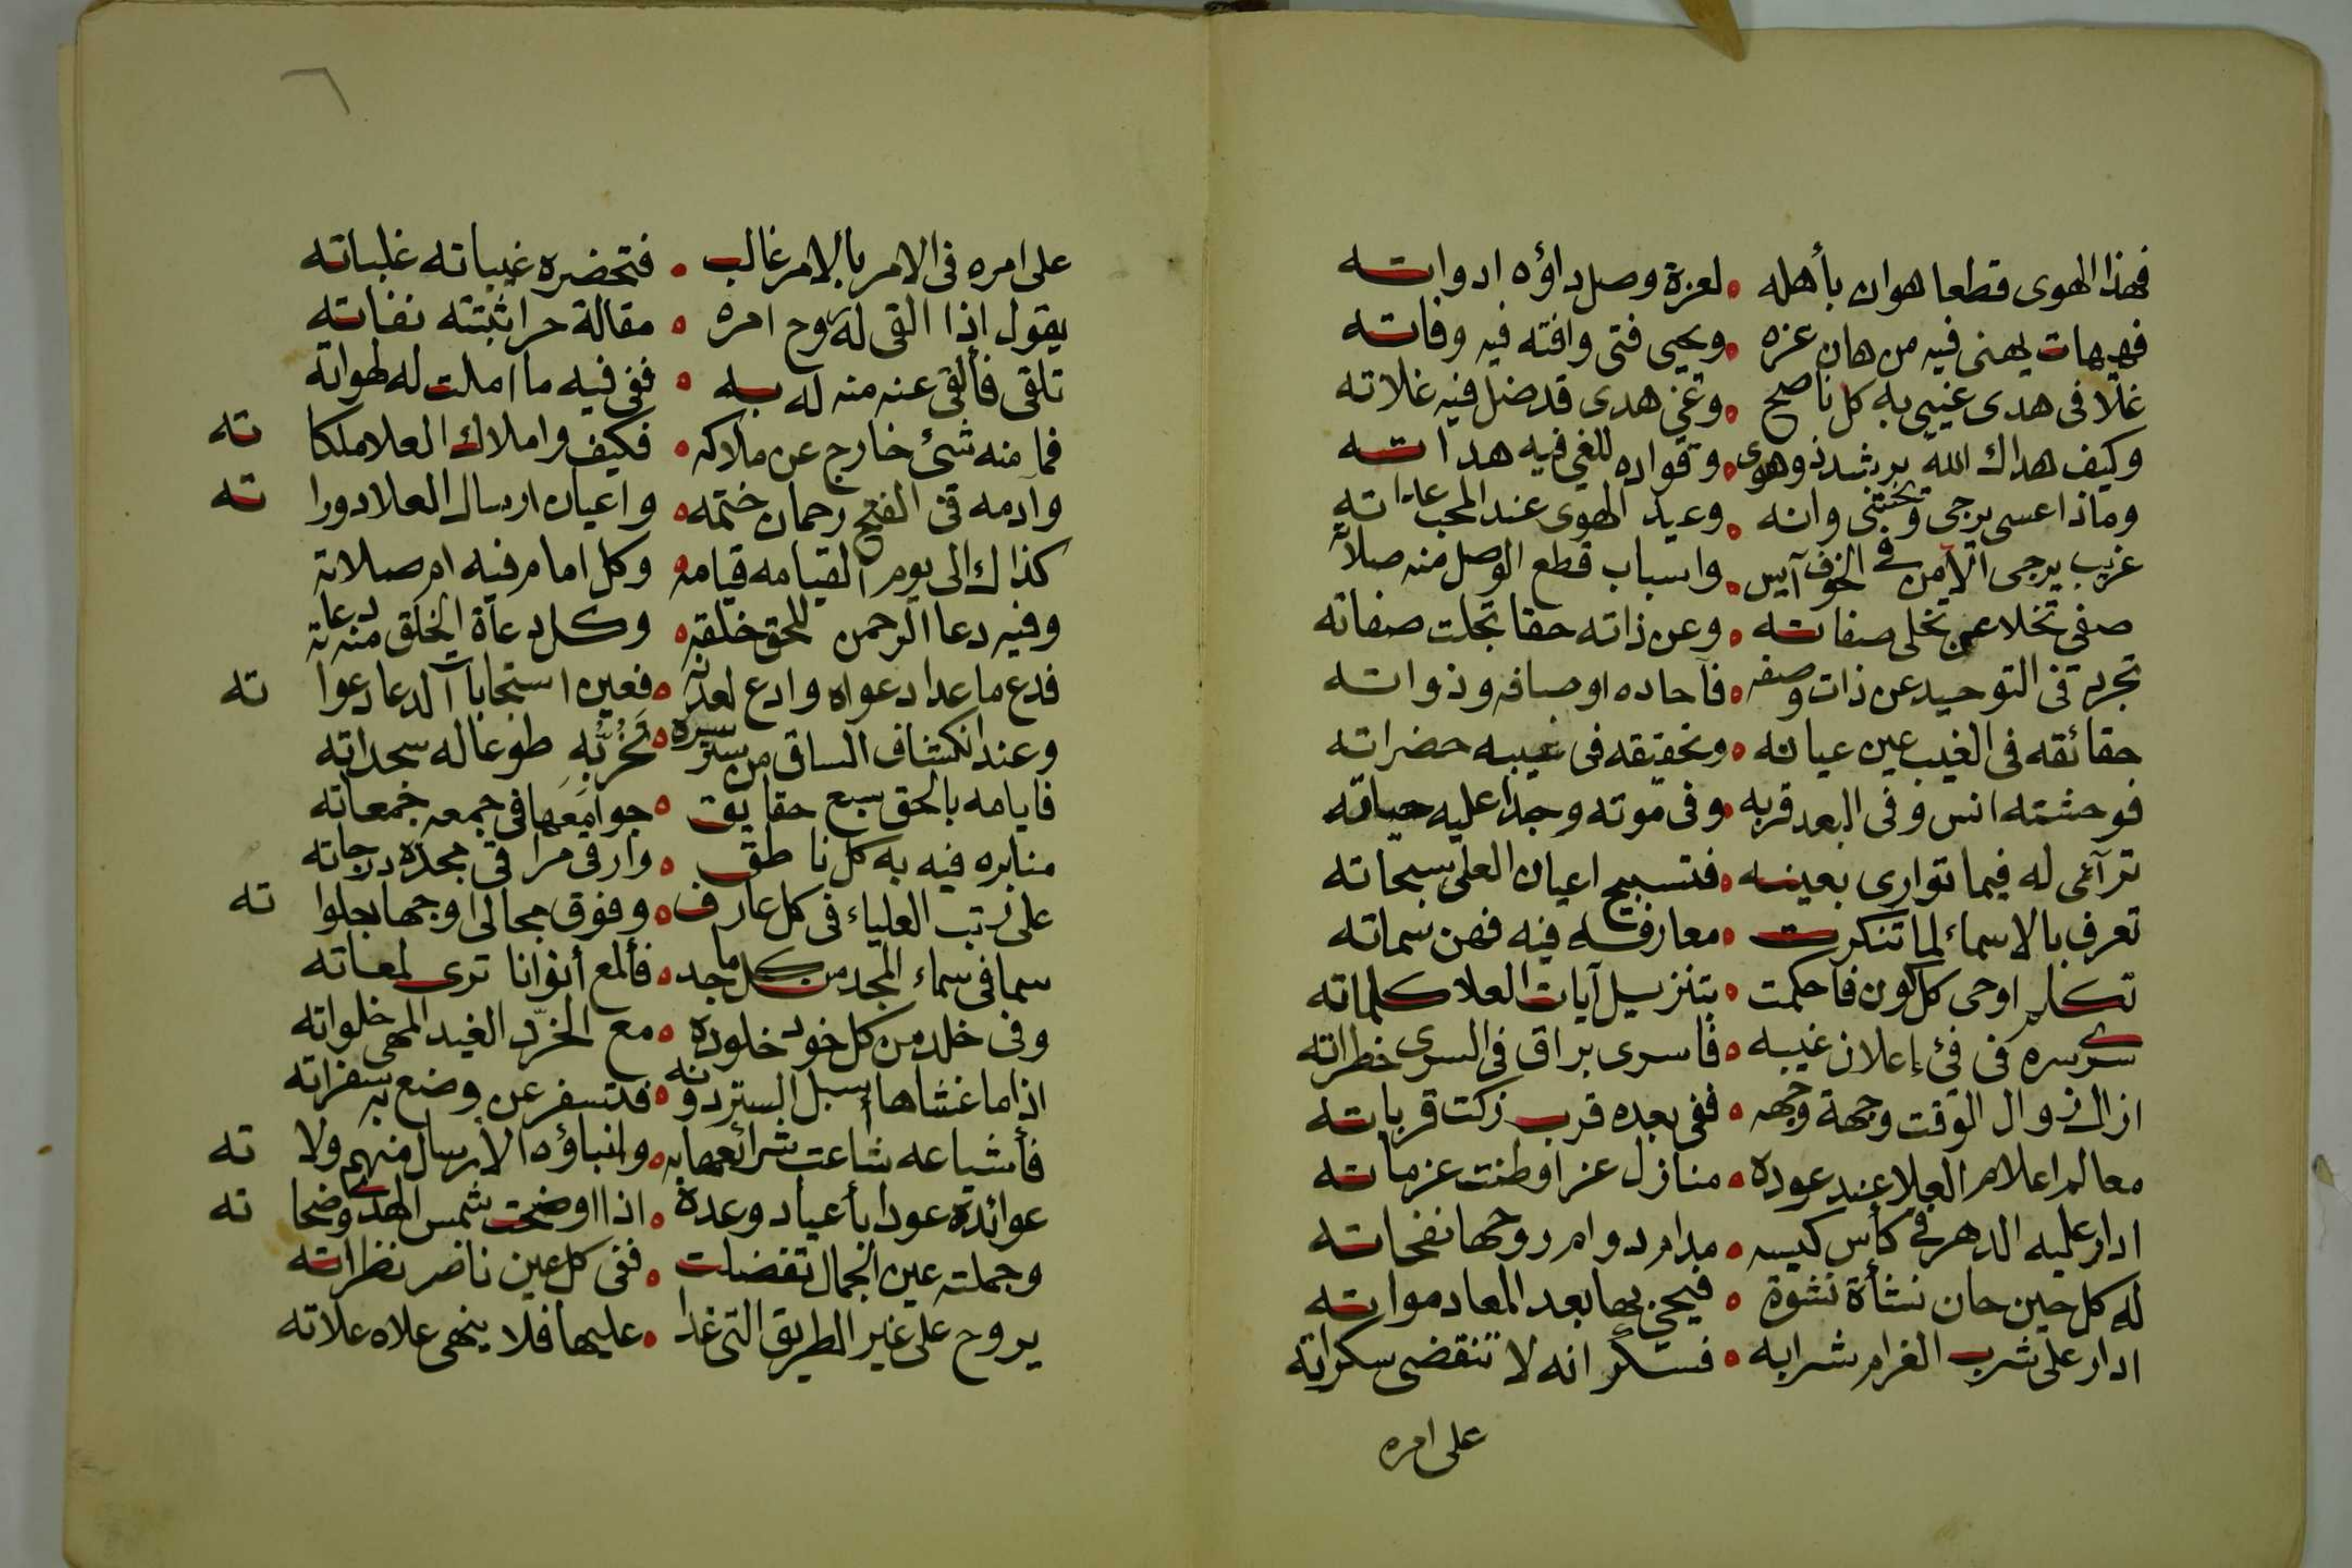 فهذا الهوى قطعا هوان بأهله • لعزة وصل داؤه ادواته
فهيهات يهنى فيه من هان عزه • ويحيى فتى وافته فيه وفاته
غلا فى هدى غيى به كل ناصح • وغي هدى قد ضل فيه غلاته
وكيف هداك الله يرشد ذو هوى • وقواده للغي فيه هداته
وماذا عسى يرجى ويختشى وانه • وعيد الهوى عند المحب عداته
غريب يرجى الامن فى الخوف آيس • واسباب قطع الوصل منه صلاته
صفى تخلا عن تخلى صفاته • وعن ذاته حقا تجلت صفاته
تجرد فى التوحيد عن ذات وصفه • فآحاده اوصافه وذواته
حقائقه فى الغيب عين عيانه • وتحقيقه فى غيبه حضراته
فوحشته انس وفى البعد قربه • وفى موته وجدا عليه حياته
ترآئى له فيما توارى بعينه • فتسبيح اعيان العلى سبحاته
تعرف بالاسماء لما تنكرت • معارفه فيه فهن سماته
تكلم اوحى كل كون فاحكمت • بتنزيل آيات العلا كلماته
سرى سره فى فئ إعلان غيبه • فأسرى براق فى السرى خطراته
ازال زوال الوقت وجهة وجهه • ففى بعده قرب زكت قرباته
معالم اعلام العلا عند عوده • منازل عز اوطنت عزماته
ادار عليه الدهر فى كأس كيسه • مدام دوام روحها نفحاته
له كل حين حان نشأة نشوة • فيحيى بها بعد المعاد مواته
ادار على شرب الغرام شرابه • فسكرانه لا تنقضى سكراته
على امره
٦
على امره فى الامر بالامر غالب • فتحضره غيباته غلباته
يقول اذا القى له روح امره • مقالة حر اثبتته نفاته
تلقى فألقى عنه منه له به • ففى فيه ما املت له لهواته
فما منه شئ خارج عن ملاكه • فكيف واملاك العلا ملكاته
وآدمه فى الفتح رحمان ختمه • واعيان ارسال العلا دوراته
كذاك الى يوم القيامه قيامه • وكل امام فيه ام صلاته
وفيه دعا الرحمن للحق خلقه • وكل دعاة الخلق منه دعاته
فدع ما عدا دعواه وادع لعدنه • فعين استجابا آلدعا دعواته
وعند انكشاف الساق من ستر سره • تخر به طوعا له سجداته
فايامه بالحق سبع حقايق • جوامعها فى جمعه جمعاته
منابره فيه به كل ناطق • وارقى مراقى مجده درجاته
على رتب العلياء فى كل عارف • وفوق مجالى اوجها جلواته
سما فى سماء المجد من كل ماجد • فألمع أنوانا ترى لمعاته
وفى خلد من كل خود خلوده • مع الخرّد الغيد المهى خلواته
اذا ما غشاها اسبل الستر دونه • فتسفر عن وضع به سفراته
فأشياعه شاعت شرائعها به • وانباؤه الأرسال منهم ولاته
عوائده عودا بأعياد وعدة • اذا اوضحت شمس الهدى وضحاته
وجملته عين الجمال تفضلت • ففى كل عين ناضر نظراته
يروح على غير الطريق التى غدا • عليها فلا ينهى علاه علاته